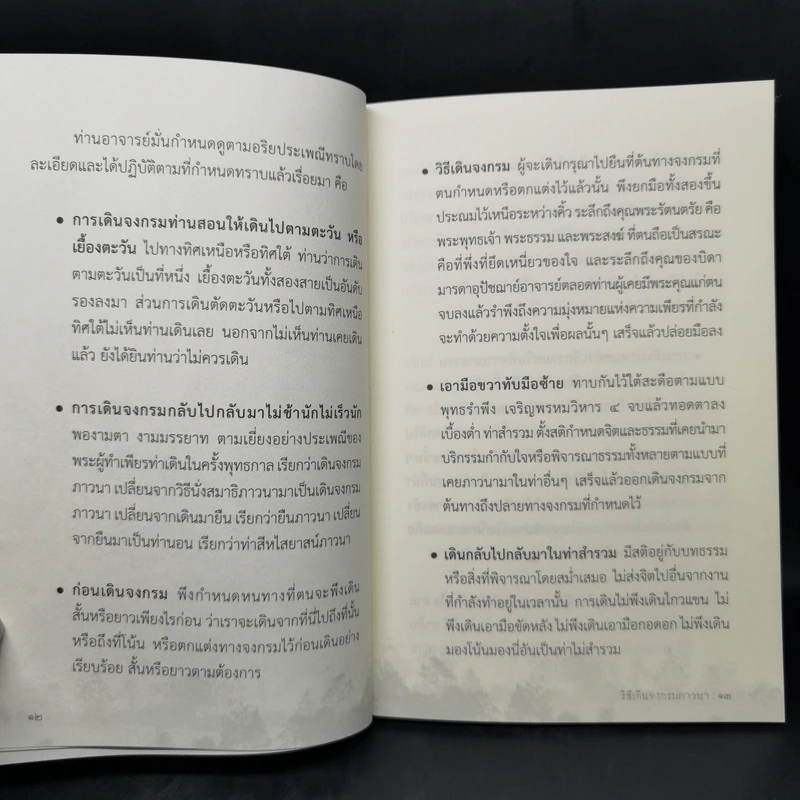 ท่านอาจารย์มั่นกำหนดดูตามอริยประเพณีทราบโดย
ละเอียดและได้ปฏิบัติตามที่กำหนดทราบแล้วเรื่อยมา คือ
• การเดินจงกรมท่านสอนให้เดินไปตามตะวัน หรือ
เยื้องตะวัน ไปทางทิศเหนือหรือทิศใต้ ท่านว่าการเดิน
ตามตะวันเป็นที่หนึ่ง เยื้องตะวันทั้งสองสายเป็นอันดับ
รองลงมา ส่วนการเดินตัดตะวันหรือไปตามทิศเหนือ
ทิศใต้ไม่เห็นท่านเดินเลย นอกจากไม่เห็นท่านเคยเดิน
แล้ว ยังได้ยินท่านว่าไม่ควรเดิน
• การเดินจงกรมกลับไปกลับมาไม่ช้านักไม่เร็วนัก
พองามตา งามมรรยาท ตามเยี่ยงอย่างประเพณีของ
พระผู้ทำเพียรท่าเดินในครั้งพุทธกาล เรียกว่าเดินจงกรม
ภาวนา เปลี่ยนจากวิธีนั่งสมาธิภาวนามาเป็นเดินจงกรม
ภาวนา เปลี่ยนจากเดินมายืน เรียกว่ายืนภาวนา เปลี่ยน
จากยืนมาเป็นท่านอน เรียกว่าท่าสีหไสยาสน์ภาวนา
• ก่อนเดินจงกรม พึงกำหนดหนทางที่ตนจะพึงเดิน
สั้นหรือยาวเพียงไรก่อน ว่าเราจะเดินจากที่นี่ไปถึงที่นั้น
หรือถึงที่โน้น หรือตกแต่งทางจงกรมไว้ก่อนเดินอย่าง
เรียบร้อย สั้นหรือยาวตามต้องการ
๑๒
• วิธีเดินจงกรม ผู้จะเดินกรุณาไปยืนที่ต้นทางจงกรมที่
ตนกำหนดหรือตกแต่งไว้แล้วนั้น พึงยกมือทั้งสองขึ้น
ประณมไว้เหนือระหว่างคิ้ว ระลึกถึงคุณพระรัตนตรัย คือ
พระพุทธเจ้า พระธรรม และพระสงฆ์ ที่ตนถือเป็นสรณะ
คือที่พึ่งที่ยึดเหนี่ยวของใจ และระลึกถึงคุณของบิดา
มารดาอุปัชฌาย์อาจารย์ตลอดท่านผู้เคยมีพระคุณแก่ตน
จบลงแล้วรำพึงถึงความมุ่งหมายแห่งความเพียรที่กำลัง
จะทำด้วยความตั้งใจเพื่อผลนั้นๆ เสร็จแล้วปล่อยมือลง
• เอามือขวาทับมือซ้าย ทาบกันไว้ใต้สะดือตามแบบ
พุทธรำพึง เจริญพรหมวิหาร ๔ จบแล้วทอดตาลง
เบื้องต่ำ ท่าสำรวม ตั้งสติกำหนดจิตและธรรมที่เคยนำมา
บริกรรมกำกับใจหรือพิจารณาธรรมทั้งหลายตามแบบที่
เคยภาวนามาในท่าอื่นๆ เสร็จแล้วออกเดินจงกรมจาก
ต้นทางถึงปลายทางจงกรมที่กำหนดไว้
• เดินกลับไปกลับมาในท่าสำรวม มีสติอยู่กับบทธรรม
หรือสิ่งที่พิจารณาโดยสม่ำเสมอ ไม่ส่งจิตไปอื่นจากงาน
ที่กำลังทำอยู่ในเวลานั้น การเดินไม่พึงเดินไกวแขน ไม่
พึงเดินเอามือขัดหลัง ไม่พึงเดินเอามือกอดอก ไม่พึงเดิน
มองโน้นมองนี่อันเป็นท่าไม่สำรวม
วิธีเดินจงกรมภาวนา : ๑๓